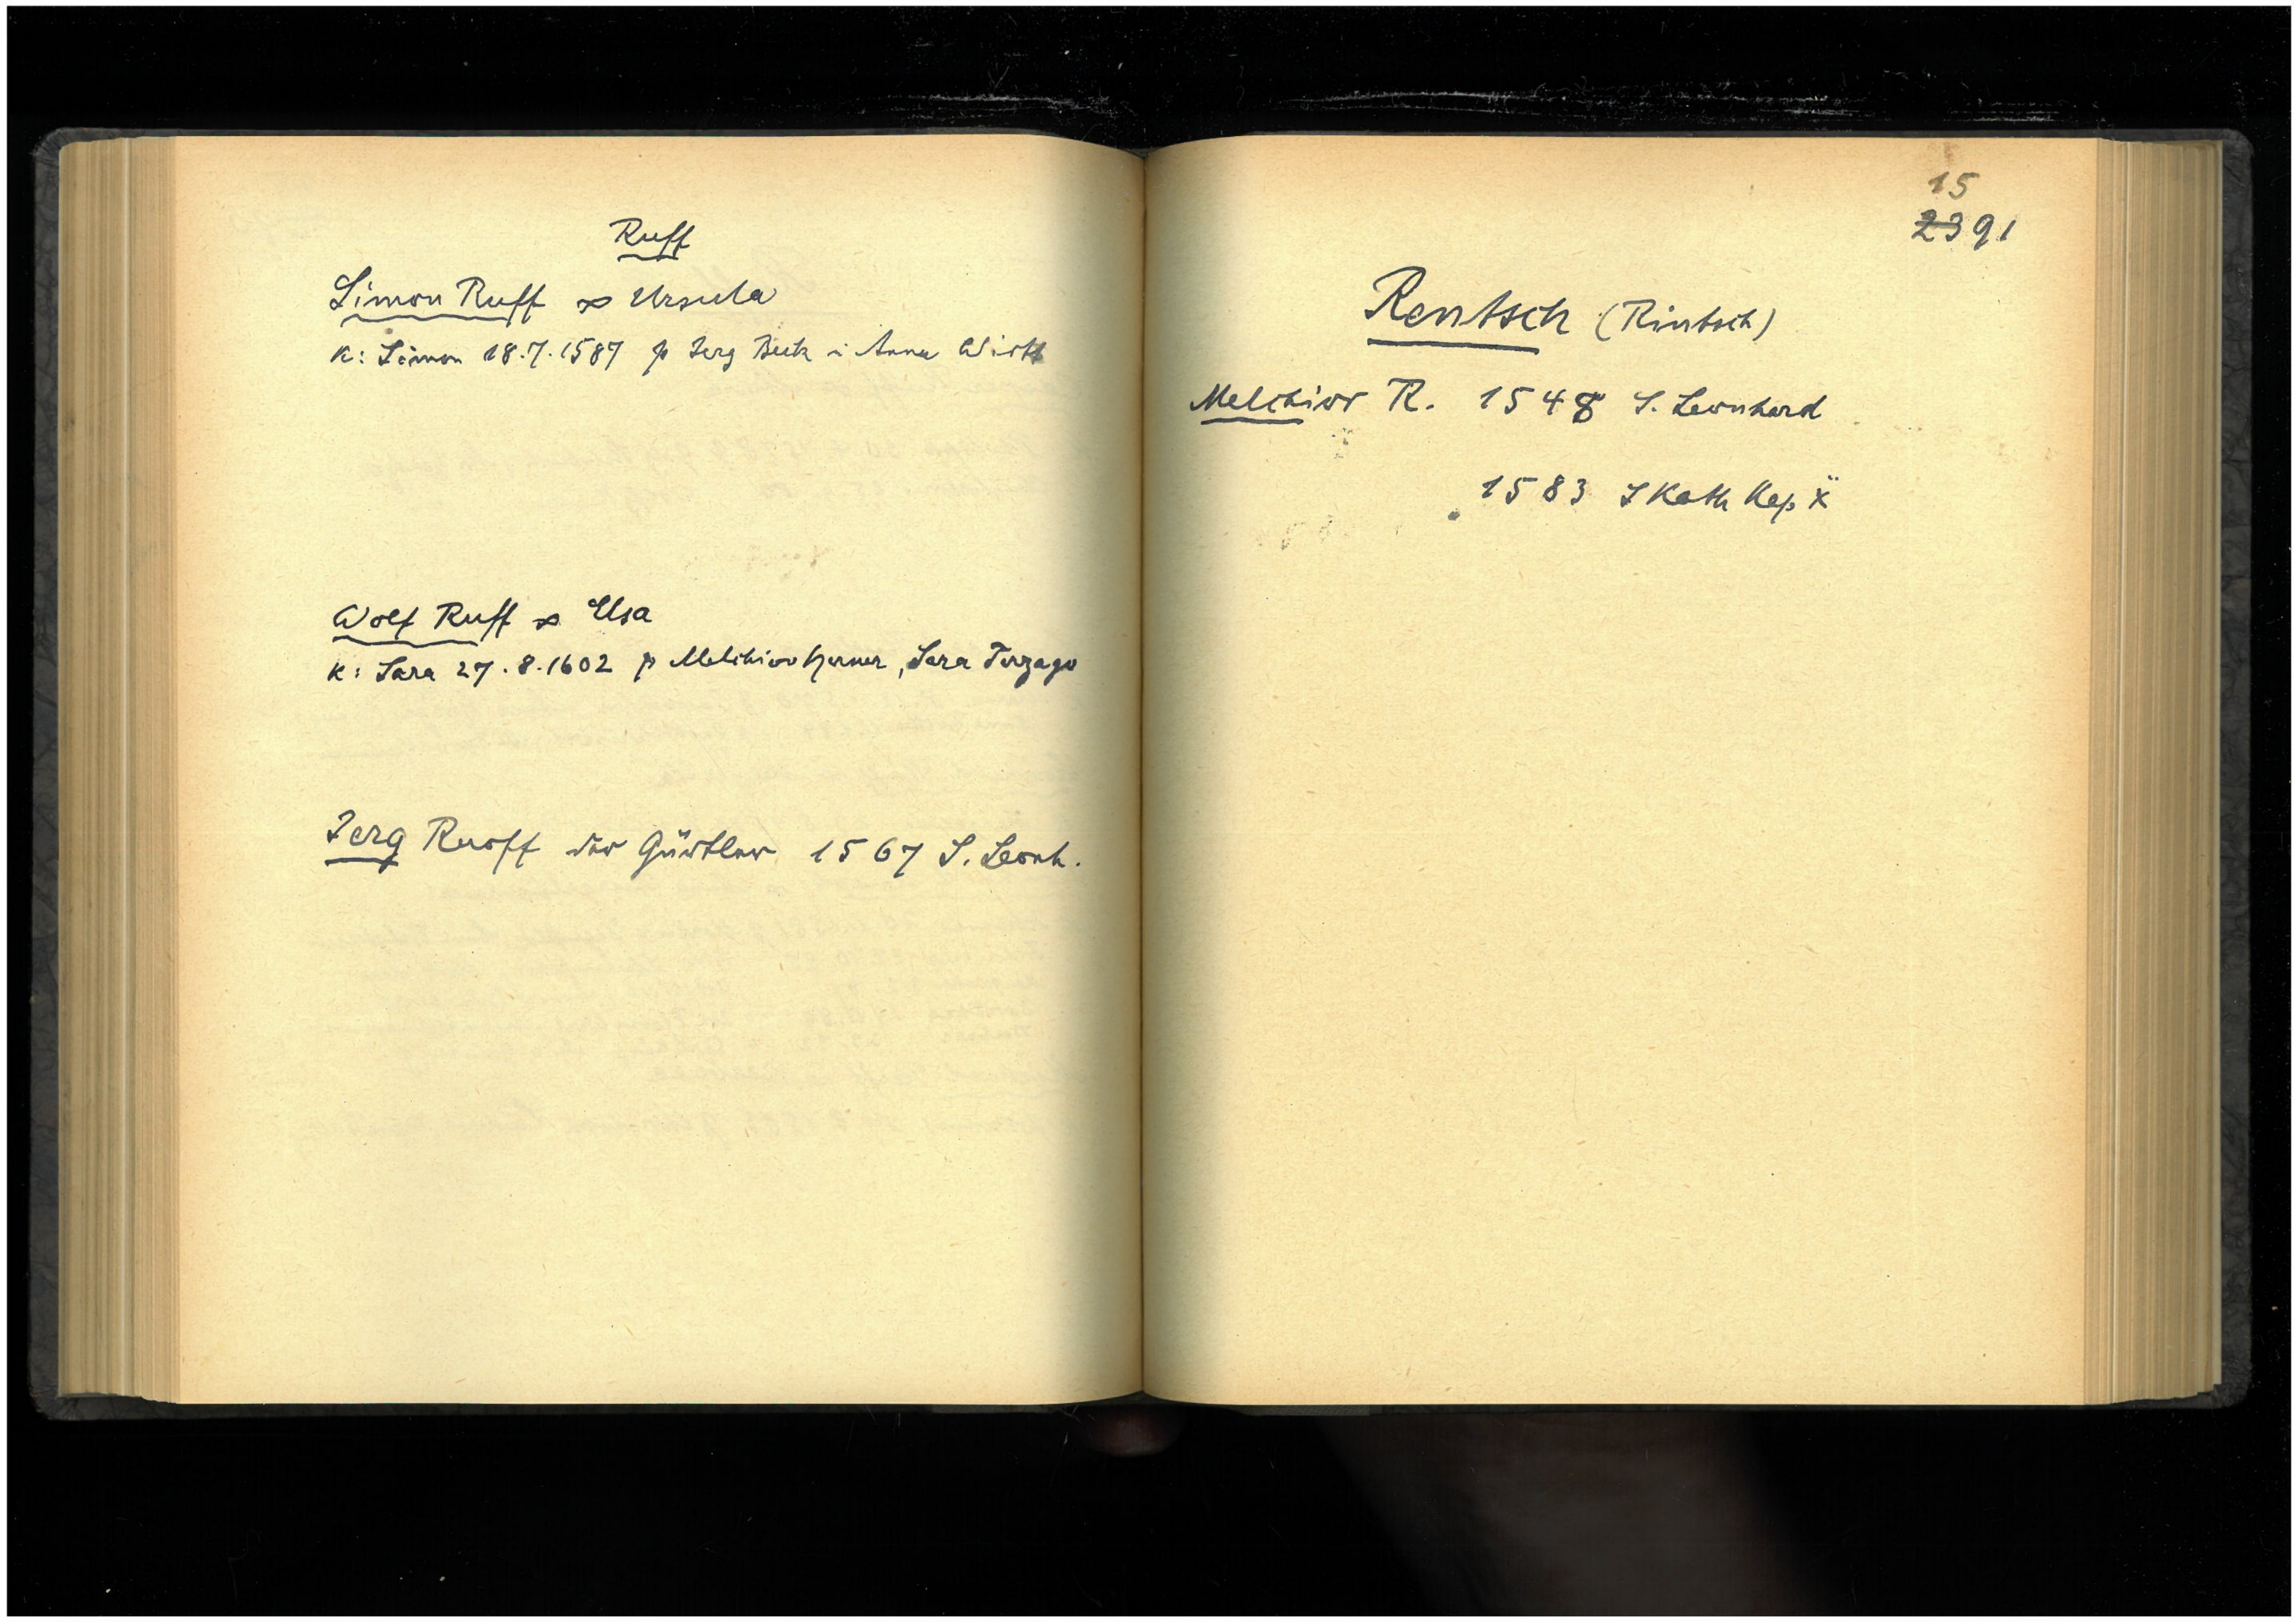 Ruff
Simon Ruff ∞ Ursula
K: Simon 18.7.1587 p Jerg Beck i Anna Wirtt
Wolf Ruff ∞ Elsa
K: Sara 27.8.1602 p Melchior Hener, Sara Terzago
Jerg Ruoff der Gürtler 1567 S. Leonh.
15
2391
Rentsch (Rintsch)
Melchior R. 1548 S. Leonhard
1583 S Kath Kap